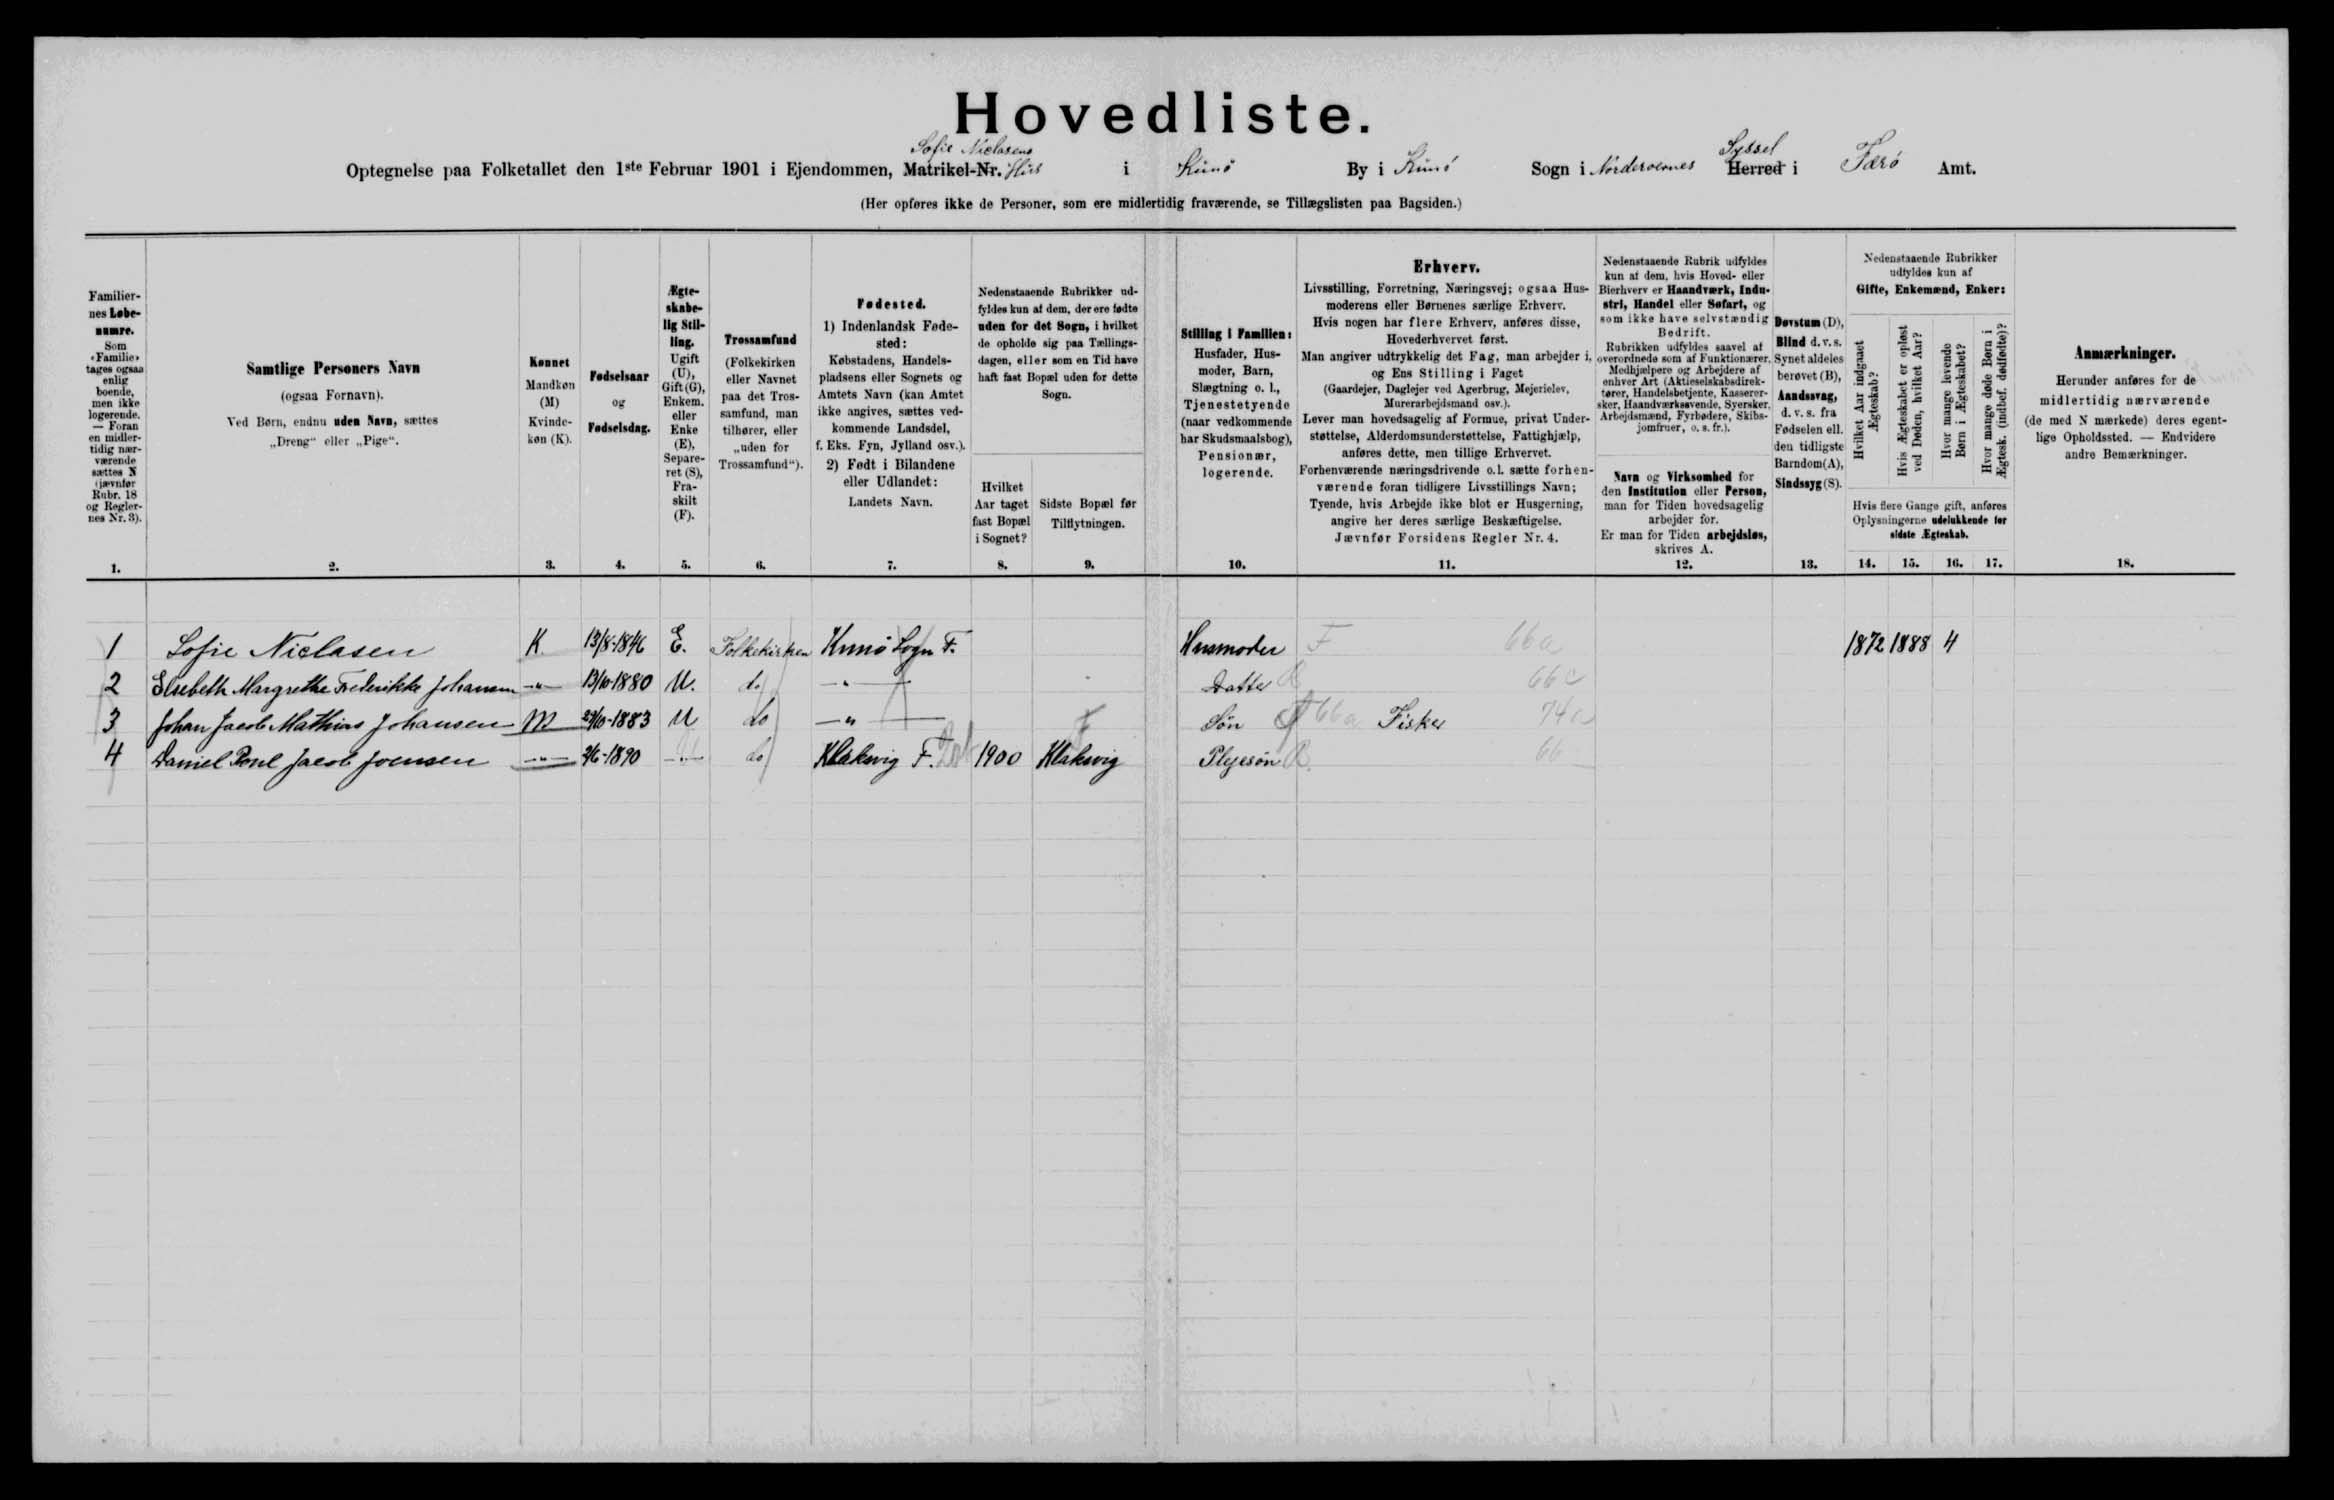 Hovedliste.
Sofie Niclasens Syssel
Optegnelse paa Folketallet den 1ste Februar 1901 i Ejendommen, Matrikel-Nr. Hus i Kunø By i Kunø Sogn i Norderoernes Herred i Færø Amt.
(Her opføres ikke de Personer, som ere midlertidig fraværende, se Tillægslisten paa Bagsiden.)
Familiernes Løbenumre.
Som «Familie» tages ogsaa enlig boende, men ikke logerende. — Foran en midlertidig nærværende sættes N (jævnfør Rubr. 18 og Reglernes Nr. 3).
1.
Samtlige Personers Navn
(ogsaa Fornavn).
Ved Børn, endnu uden Navn, sættes
„Dreng“ eller „Pige“.
2.
Kønnet
Mandkøn (M)
Kvindekøn (K).
3.
Fødselsaar
og
Fødselsdag.
4.
Ægteskabelig Stilling.
Ugift (U), Gift (G), Enkem. eller Enke (E), Separeret (S), Fraskilt (F).
5.
Trossamfund
(Folkekirken eller Navnet paa det Trossamfund, man tilhører, eller „uden for Trossamfund“).
6.
Fødested.
1) Indenlandsk Fødested:
Købstadens, Handelspladsens eller Sognets og Amtets Navn (kan Amtet ikke angives, sættes vedkommende Landsdel, f. Eks. Fyn, Jylland osv.).
2) Født i Bilandene eller Udlandet:
Landets Navn.
7.
Nedenstaaende Rubrikker udfyldes kun af dem, der ere fødte uden for det Sogn, i hvilket de opholde sig paa Tællingsdagen, eller som en Tid have haft fast Bopæl uden for dette Sogn.
Hvilket Aar taget fast Bopæl i Sognet?
8.
Sidste Bopæl før Tilflytningen.
9.
Stilling i Familien:
Husfader, Husmoder, Barn, Slægtning o. l., Tjenestetyende (naar vedkommende har Skudsmaalsbog), Pensionær, logerende.
10.
Erhverv.
Livsstilling, Forretning, Næringsvej; ogsaa Husmoderens eller Børnenes særlige Erhverv.
Hvis nogen har flere Erhverv, anføres disse, Hovederhvervet først.
Man angiver udtrykkelig det Fag, man arbejder i, og Ens Stilling i Faget
(Gaardejer, Daglejer ved Agerbrug, Mejerielev, Murerarbejdsmand osv.).
Lever man hovedsagelig af Formue, privat Understøttelse, Alderdomsunderstøttelse, Fattighjælp, anføres dette, men tillige Erhvervet.
Forhenværende næringsdrivende o. l. sætte forhenværende foran tidligere Livsstillings Navn;
Tyende, hvis Arbejde ikke blot er Husgerning, angive her deres særlige Beskæftigelse.
Jævnfør Forsidens Regler Nr. 4.
11.
Nedenstaaende Rubrik udfyldes kun af dem, hvis Hoved- eller Bierhverv er Haandværk, Industri, Handel eller Søfart, og som ikke have selvstændig Bedrift.
Rubrikken udfyldes saavel af overordnede som af Funktionærer, Medhjælpere og Arbejdere af enhver Art (Aktieselskabsdirektører, Handelsbetjente, Kasserersker, Haandværkssvende, Syersker, Arbejdsmænd, Fyrbødere, Skibsjomfruer, o. s. fr.).
Navn og Virksomhed for den Institution eller Person, man for Tiden hovedsagelig arbejder for.
Er man for Tiden arbejdsløs, skrives A.
12.
Døvstum (D), Blind d. v. s. Synet aldeles berøvet (B), Aandssvag, d. v. s. fra Fødselen ell. den tidligste Barndom (A), Sindssyg (S).
13.
Nedenstaaende Rubrikker udfyldes kun af
Gifte, Enkemænd, Enker:
Hvilket Aar indgaaet Ægteskab?
Hvis Ægteskabet er opløst ved Døden, hvilket Aar?
Hvor mange levende Børn i Ægteskabet?
Hvor mange døde Børn i Ægtesk. (indbef. dødfødte)?
Hvis flere Gange gift, anføres Oplysningerne udelukkende for sidste Ægteskab.
14. 15. 16. 17.
Anmærkninger.
Herunder anføres for de midlertidig nærværende (de med N mærkede) deres egentlige Opholdssted. — Endvidere andre Bemærkninger.
18.
1 Sofie Niclasen K 13/8-1846 E. Folkekirken Kunø Sogn F. Husmoder F 66a 1872 1888 4
2 Elsebeth Margrethe Frederikke Johansen -"- 13/10-1880 U. do -"- Datter 66c
3 Johan Jacob Mathias Johansen M 1883 U do -"- Søn 66a Fisker 74c
4 Daniel Poul Jacob Joensen -"- 2/6-1890 -"- do Klaksvig F. 1900 Klaksvig Plejesøn 66